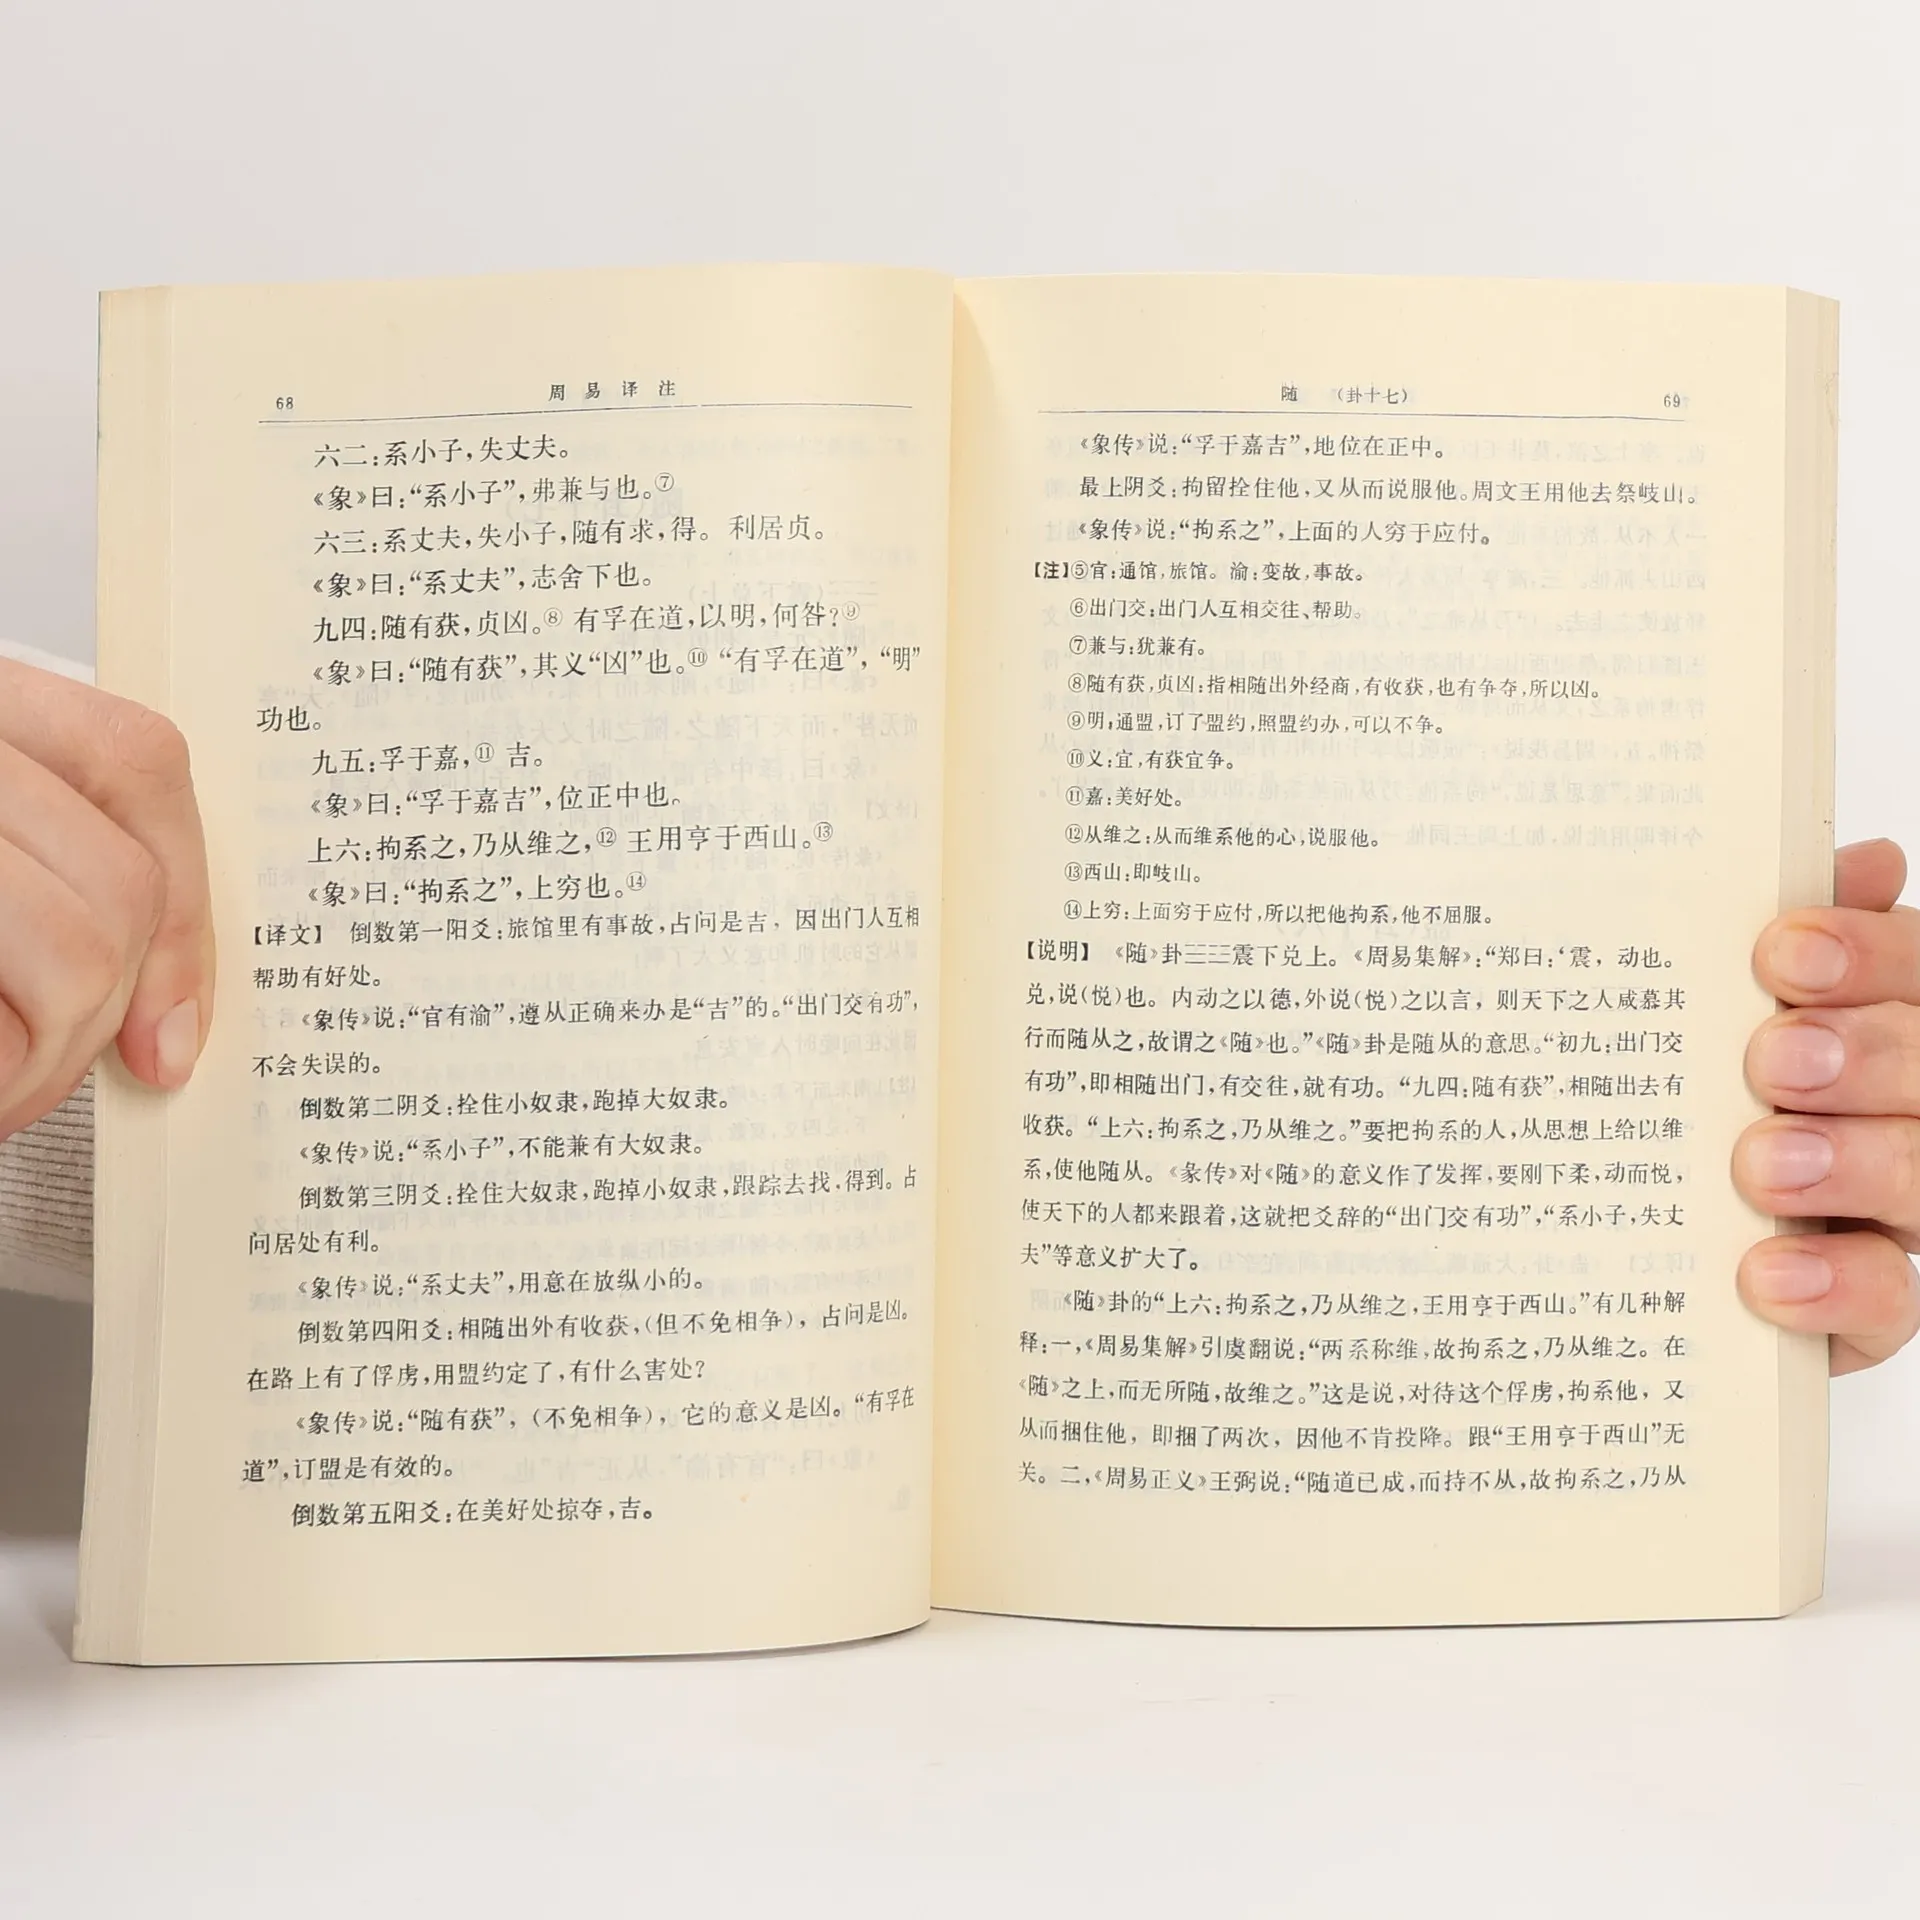 68
周易译注
六二：系小子，失丈夫。
《象》曰：“系小子”，弗兼与也。⑦
六三：系丈夫，失小子，随有求，得。利居贞。
《象》曰：“系丈夫”，志舍下也。
九四：随有获，贞凶。⑧有孚在道，以明，何咎？⑨
《象》曰：“随有获”，其义“凶”也。⑩“有孚在道”，“明”
功也。
九五：孚于嘉，⑪吉。
《象》曰：“孚于嘉吉”，位正中也。
上六：拘系之，乃从维之，⑫王用亨于西山。⑬
《象》曰：“拘系之”，上穷也。⑭
【译文】 倒数第一阳爻：旅馆里有事故，占问是吉，因出门人互相
帮助有好处。
《象传》说：“官有渝”，遵从正确来办是“吉”的。“出门交有功”，
不会失误的。
倒数第二阴爻：拴住小奴隶，跑掉大奴隶。
《象传》说：“系小子”，不能兼有大奴隶。
倒数第三阴爻：拴住大奴隶，跑掉小奴隶，跟踪去找，得到。占
问居处有利。
《象传》说：“系丈夫”，用意在放纵小的。
倒数第四阳爻：相随出外有收获，（但不免相争），占问是凶。
在路上有了俘虏，用盟约定了，有什么害处？
《象传》说：“随有获”，（不免相争），它的意义是凶。“有孚在
道”，订盟是有效的。
倒数第五阳爻：在美好处掠夺，吉。
随 （卦十七）
69
《象传》说：“孚于嘉吉”，地位在正中。
最上阴爻：拘留拴住他，又从而说服他。周文王用他去祭岐山。
《象传》说：“拘系之”，上面的人穷于应付。
【注】⑤官：通馆，旅馆。渝：变故，事故。
⑥出门交：出门人互相交往、帮助。
⑦兼与：犹兼有。
⑧随有获，贞凶：指相随出外经商，有收获，也有争夺，所以凶。
⑨明：通盟，订了盟约，照盟约办，可以不争。
⑩义：宜，有获宜争。
⑪嘉：美好处。
⑫从维之：从而维系他的心，说服他。
⑬西山：即岐山。
⑭上穷：上面穷于应付，所以把他拘系，他不屈服。
【说明】 《随》卦☳☱震下兑上。《周易集解》：“郑曰：‘震，动也。
兑，说（悦）也。内动之以德，外说（悦）之以言，则天下之人咸慕其
行而随从之，故谓之《随》也。”《随》卦是随从的意思。“初九：出门交
有功”，即相随出门，有交往，就有功。“九四：随有获”，相随出去有
收获。“上六：拘系之，乃从维之。”要把拘系的人，从思想上给以维
系，使他随从。《彖传》对《随》的意义作了发挥，要刚下柔，动而悦，
使天下的人都来跟着，这就把爻辞的“出门交有功”，“系小子，失丈
夫”等意义扩大了。
《随》卦的“上六：拘系之，乃从维之，王用亨于西山。”有几种解
释：一，《周易集解》引虞翻说：“两系称维，故拘系之，乃从维之。在
《随》之上，而无所随，故维之。”这是说，对待这个俘虏，拘系他，又
从而捆住他，即捆了两次，因他不肯投降。跟“王用亨于西山”无
关。二，《周易正义》王弼说：“随道已成，而持不从，故拘系之，乃从